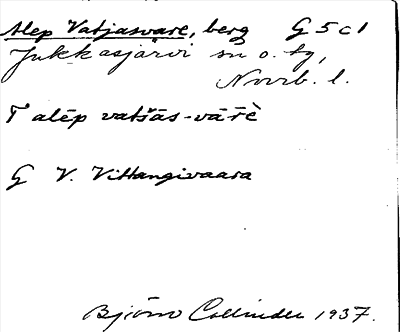 Alep Vatjasvare, berg G 5 c 1
Jukkasjärvi sn o. tg,
Norrb. l.
T alēp vatšās-vārḕ
G V. Vittangivaara
Björn Collinder 1937.